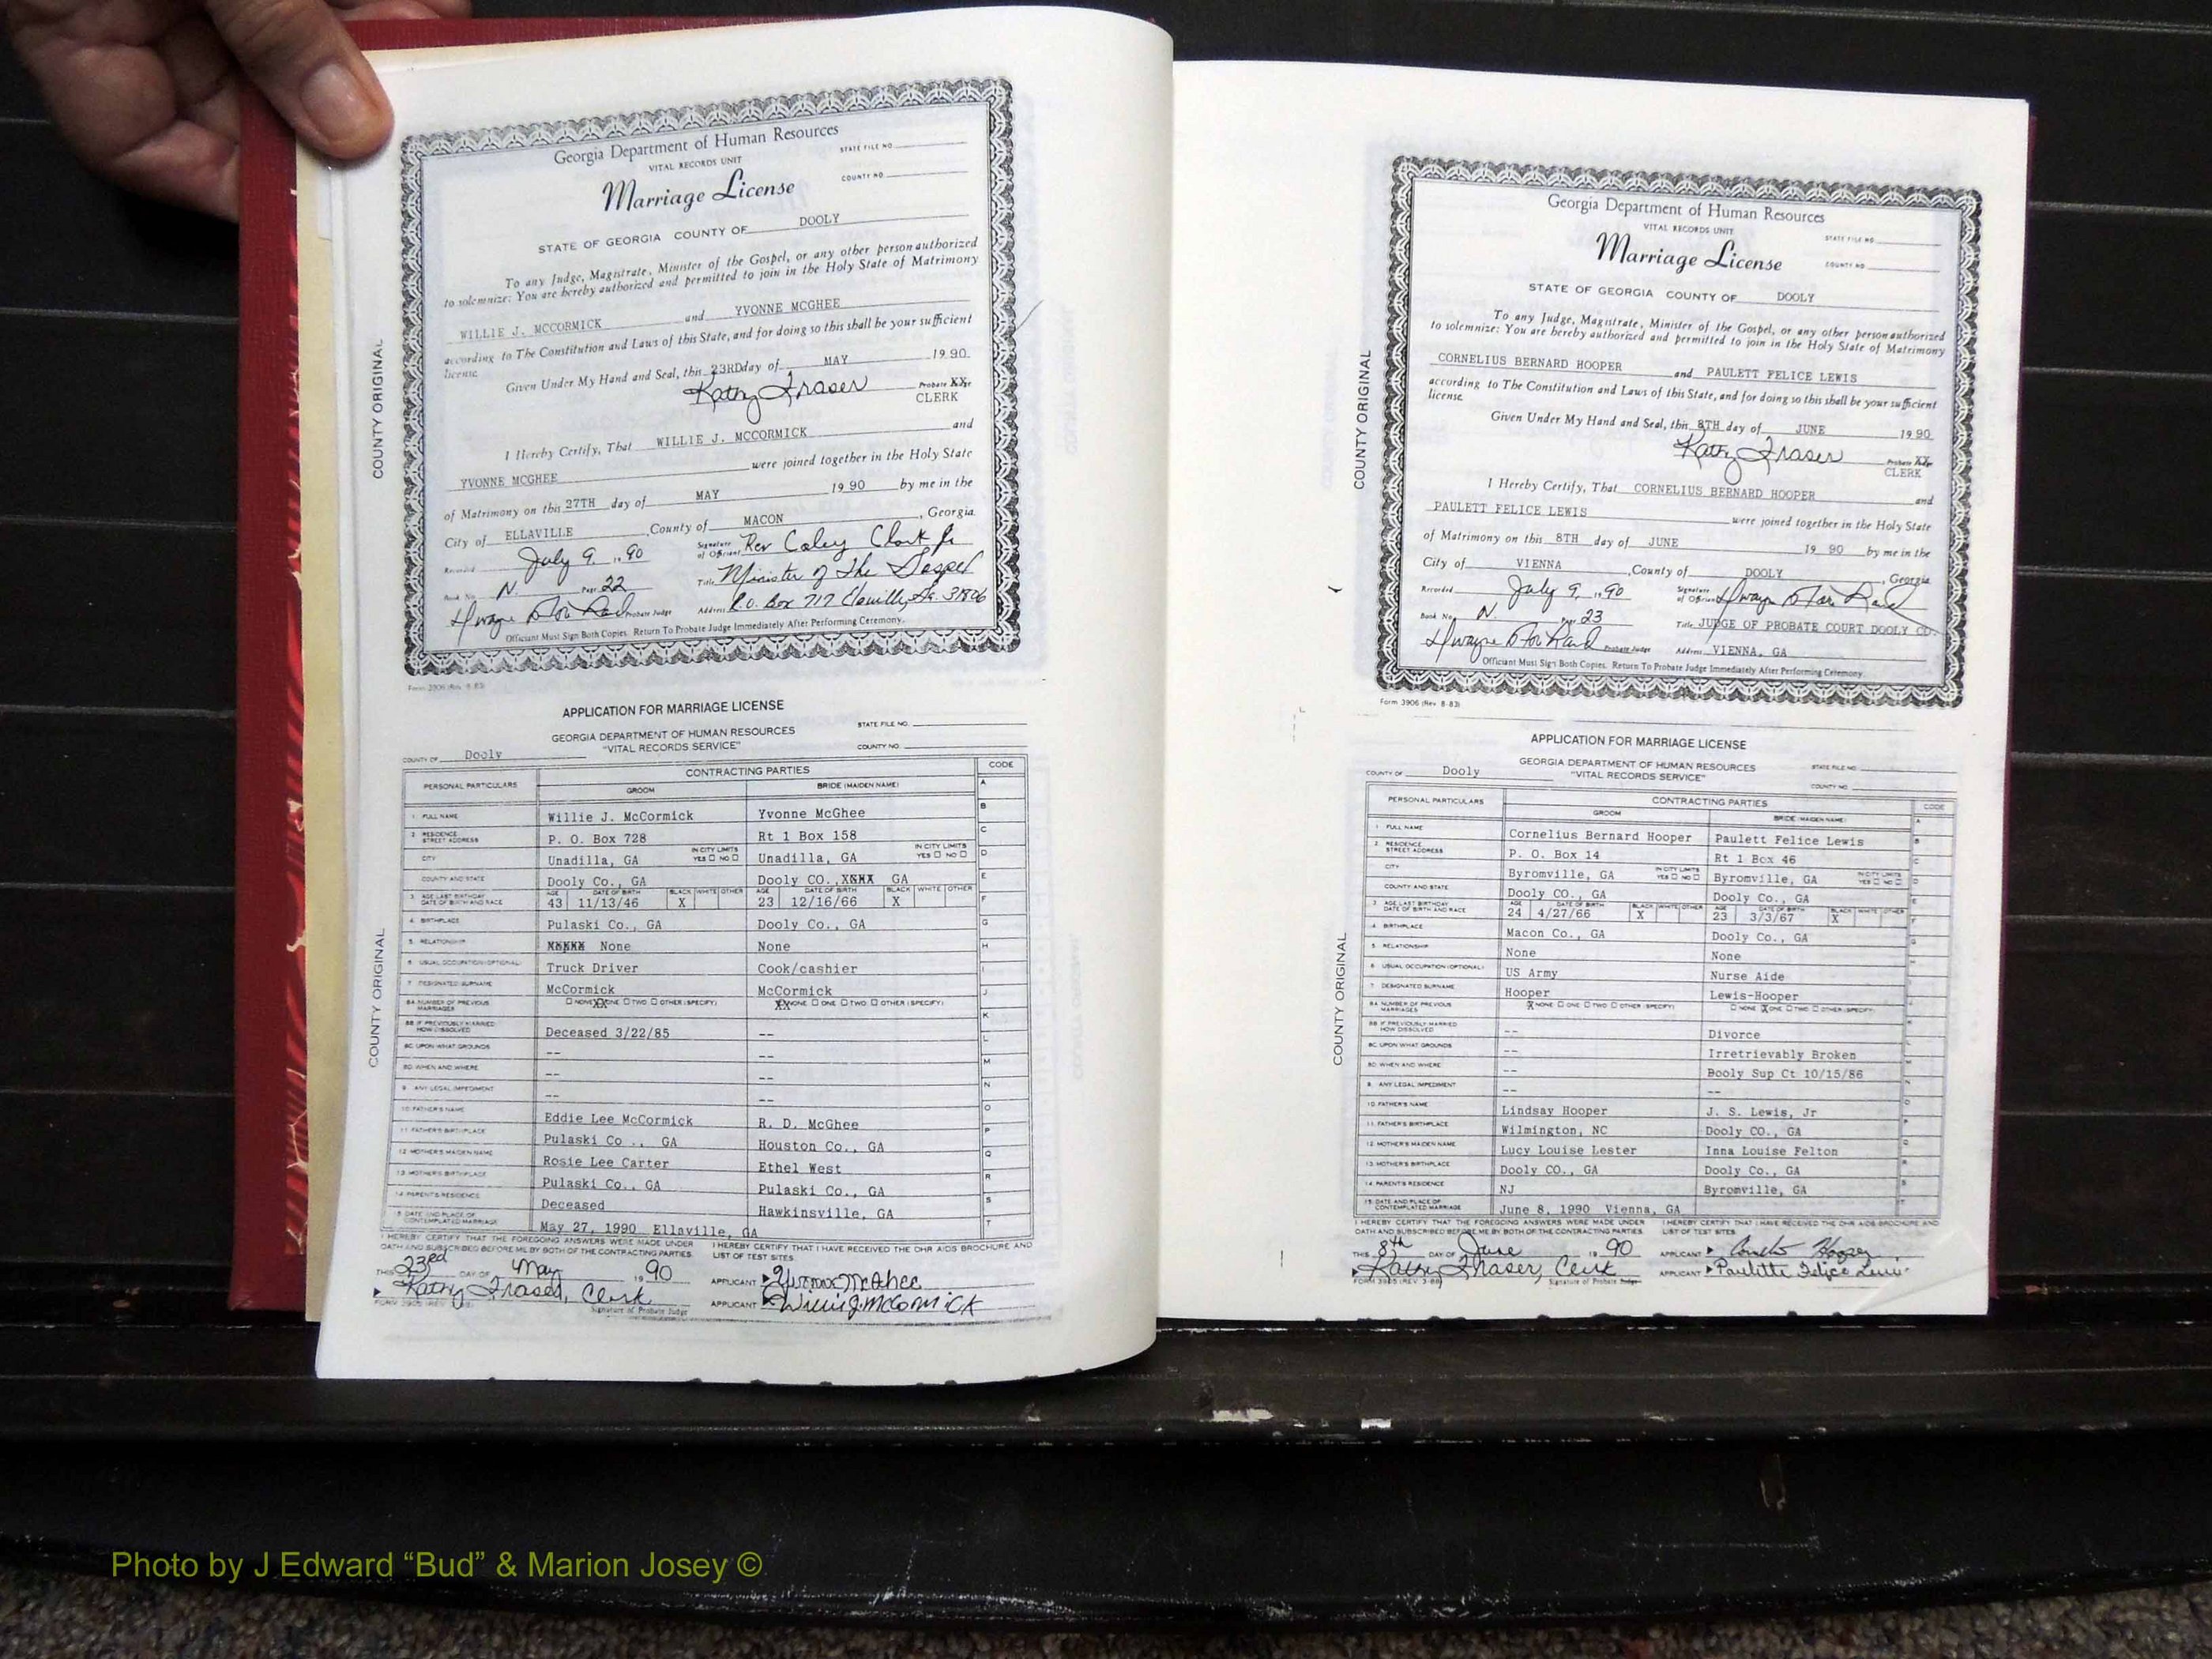 Georgia Department of Human Resources
VITAL RECORDS UNIT
STATE FILE NO.
Marriage License
COUNTY NO
STATE OF GEORGIA COUNTY OF DOOLY
To any Judge, Magistrate, Minister of the Gospel, or any other person authorized
to solemnize: You are hereby authorized and permitted to join in the Holy State of Matrimony
WILLIE J. MCCORMICK and YVONNE MCGHEE
according to The Constitution and Laws of this State, and for doing so this shall be your sufficient
license.
Given Under My Hand and Seal, this 23RD day of MAY 19 90
Kathy Fraser Probate XX
CLERK
I Hereby Certify, That WILLIE J. MCCORMICK and
YVONNE MCGHEE were joined together in the Holy State
of Matrimony on this 27TH day of MAY 19 90 by me in the
City of ELLAVILLE, County of MACON, Georgia.
Recorded July 9, 19 90 Signature of Officiant Rev Caley Clark Jr
Book No. N. Page 22 Title Minister of The Gospel
Probate Judge Address P.O. Box 717 Ga. 31806
Officiant Must Sign Both Copies. Return To Probate Judge Immediately After Performing Ceremony.
COUNTY ORIGINAL
Form 3906 (Rev. 8-83)
APPLICATION FOR MARRIAGE LICENSE
GEORGIA DEPARTMENT OF HUMAN RESOURCES
"VITAL RECORDS SERVICE"
STATE FILE NO.
COUNTY NO.
COUNTY OF Dooly
PERSONAL PARTICULARS CONTRACTING PARTIES CODE
GROOM BRIDE (MAIDEN NAME) A
B
1. FULL NAME Willie J. McCormick Yvonne McGhee
2. RESIDENCE STREET ADDRESS P. O. Box 728 Rt 1 Box 158 C
CITY Unadilla, GA IN CITY LIMITS YES NO Unadilla, GA IN CITY LIMITS YES NO D
COUNTY AND STATE Dooly Co., GA Dooly CO., XXXX GA E
3. AGE LAST BIRTHDAY DATE OF BIRTH AND RACE AGE 43 DATE OF BIRTH 11/13/46 BLACK X WHITE OTHER AGE 23 DATE OF BIRTH 12/16/66 BLACK X WHITE OTHER F
4. BIRTHPLACE Pulaski Co., GA Dooly Co., GA G
5. RELATIONSHIP XXXXX None None H
6. USUAL OCCUPATION (OPTIONAL) Truck Driver Cook/cashier I
7. DESIGNATED SURNAME McCormick McCormick J
8A NUMBER OF PREVIOUS MARRIAGES NONE XX ONE TWO OTHER (SPECIFY) XX NONE ONE TWO OTHER (SPECIFY) K
8B IF PREVIOUSLY MARRIED HOW DISSOLVED Deceased 3/22/85 -- L
8C UPON WHAT GROUNDS -- -- M
8D WHEN AND WHERE -- -- N
9. ANY LEGAL IMPEDIMENT -- -- O
10. FATHER'S NAME Eddie Lee McCormick R. D. McGhee
11. FATHER'S BIRTHPLACE Pulaski Co., GA Houston Co., GA P
12. MOTHER'S MAIDEN NAME Rosie Lee Carter Ethel West Q
13. MOTHER'S BIRTHPLACE Pulaski Co., GA Pulaski Co., GA R
14. PARENT'S RESIDENCE Deceased Hawkinsville, GA S
15. DATE AND PLACE OF CONTEMPLATED MARRIAGE May 27, 1990 Ellaville, GA T
I HEREBY CERTIFY THAT THE FOREGOING ANSWERS WERE MADE UNDER OATH AND SUBSCRIBED BEFORE ME BY BOTH OF THE CONTRACTING PARTIES.
I HEREBY CERTIFY THAT I HAVE RECEIVED THE DHR AIDS BROCHURE AND LIST OF TEST SITES.
THIS 23rd DAY OF May 19 90 APPLICANT Yvonne McGhee
Kathy Fraser, Clerk APPLICANT Willie J. McCormick
Signature of Probate Judge
COUNTY ORIGINAL
Georgia Department of Human Resources
VITAL RECORDS UNIT
STATE FILE NO.
Marriage License
COUNTY NO
STATE OF GEORGIA COUNTY OF DOOLY
To any Judge, Magistrate, Minister of the Gospel, or any other person authorized
to solemnize: You are hereby authorized and permitted to join in the Holy State of Matrimony
CORNELIUS BERNARD HOOPER and PAULETT FELICE LEWIS
according to The Constitution and Laws of this State, and for doing so this shall be your sufficient
license.
Given Under My Hand and Seal, this 8TH day of JUNE 19 90
Kathy Fraser Probate Judge
CLERK
I Hereby Certify, That CORNELIUS BERNARD HOOPER and
PAULETT FELICE LEWIS were joined together in the Holy State
of Matrimony on this 8TH day of JUNE 19 90 by me in the
City of VIENNA, County of DOOLY, Georgia
Recorded July 9, 19 90 Signature of Officiant
Book No. N. Page 23 Title JUDGE OF PROBATE COURT DOOLY CO.
Probate Judge Address VIENNA, GA
Officiant Must Sign Both Copies. Return To Probate Judge Immediately After Performing Ceremony.
COUNTY ORIGINAL
Form 3906 (Rev. 8-83)
APPLICATION FOR MARRIAGE LICENSE
GEORGIA DEPARTMENT OF HUMAN RESOURCES
"VITAL RECORDS SERVICE"
STATE FILE NO.
COUNTY NO.
COUNTY OF Dooly
PERSONAL PARTICULARS CONTRACTING PARTIES CODE
GROOM BRIDE (MAIDEN NAME)
1. FULL NAME Cornelius Bernard Hooper Paulett Felice Lewis
2. RESIDENCE STREET ADDRESS P. O. Box 14 Rt 1 Box 46
CITY Byromville, GA IN CITY LIMITS YES NO Byromville, GA IN CITY LIMITS YES NO
COUNTY AND STATE Dooly CO., GA Dooly CO., GA
3. AGE LAST BIRTHDAY DATE OF BIRTH AND RACE AGE 24 DATE OF BIRTH 4/27/66 BLACK X WHITE OTHER AGE 23 DATE OF BIRTH 3/3/67 BLACK X WHITE OTHER
4. BIRTHPLACE Macon Co., GA Dooly Co., GA
5. RELATIONSHIP None None
6. USUAL OCCUPATION (OPTIONAL) US Army Nurse Aide
7. DESIGNATED SURNAME Hooper Lewis-Hooper
8A NUMBER OF PREVIOUS MARRIAGES X NONE ONE TWO OTHER (SPECIFY) NONE X ONE TWO OTHER (SPECIFY)
8B IF PREVIOUSLY MARRIED HOW DISSOLVED -- Divorce
8C UPON WHAT GROUNDS -- Irretrievably Broken
8D WHEN AND WHERE -- Booly Sup Ct 10/15/86
9. ANY LEGAL IMPEDIMENT -- --
10. FATHER'S NAME Lindsay Hooper J. S. Lewis, Jr
11. FATHER'S BIRTHPLACE Wilmington, NC Dooly CO., GA
12. MOTHER'S MAIDEN NAME Lucy Louise Lester Inna Louise Felton
13. MOTHER'S BIRTHPLACE Dooly CO., GA Dooly Co., GA
14. PARENT'S RESIDENCE NJ Byromville, GA
15. DATE AND PLACE OF CONTEMPLATED MARRIAGE June 8, 1990 Vienna, GA
I HEREBY CERTIFY THAT THE FOREGOING ANSWERS WERE MADE UNDER OATH AND SUBSCRIBED BEFORE ME BY BOTH OF THE CONTRACTING PARTIES.
I HEREBY CERTIFY THAT I HAVE RECEIVED THE DHR AIDS BROCHURE AND LIST OF TEST SITES.
THIS 8th DAY OF June 19 90 APPLICANT Hooper
Kathy Fraser, Clerk APPLICANT Paulette Felice Lewis
FORM 3905 (REV. 3-88) Signature of Probate Judge
COUNTY ORIGINAL
Photo by J Edward “Bud” & Marion Josey ©